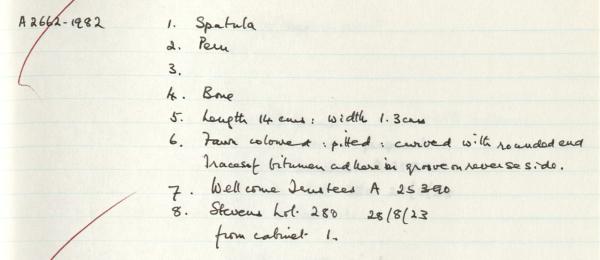 A2662-1982 1. Spatula
2. Peru
3.
4. Bone
5. Length 14 cms : width 1.3cms
6. Fawn coloured : pitted : curved with rounded end
Traces of bitumen adhere in groove on reverse side.
7. Wellcome Trustees A 25390
8. Stevens Lot. 280 28/8/23
from cabinet 1.